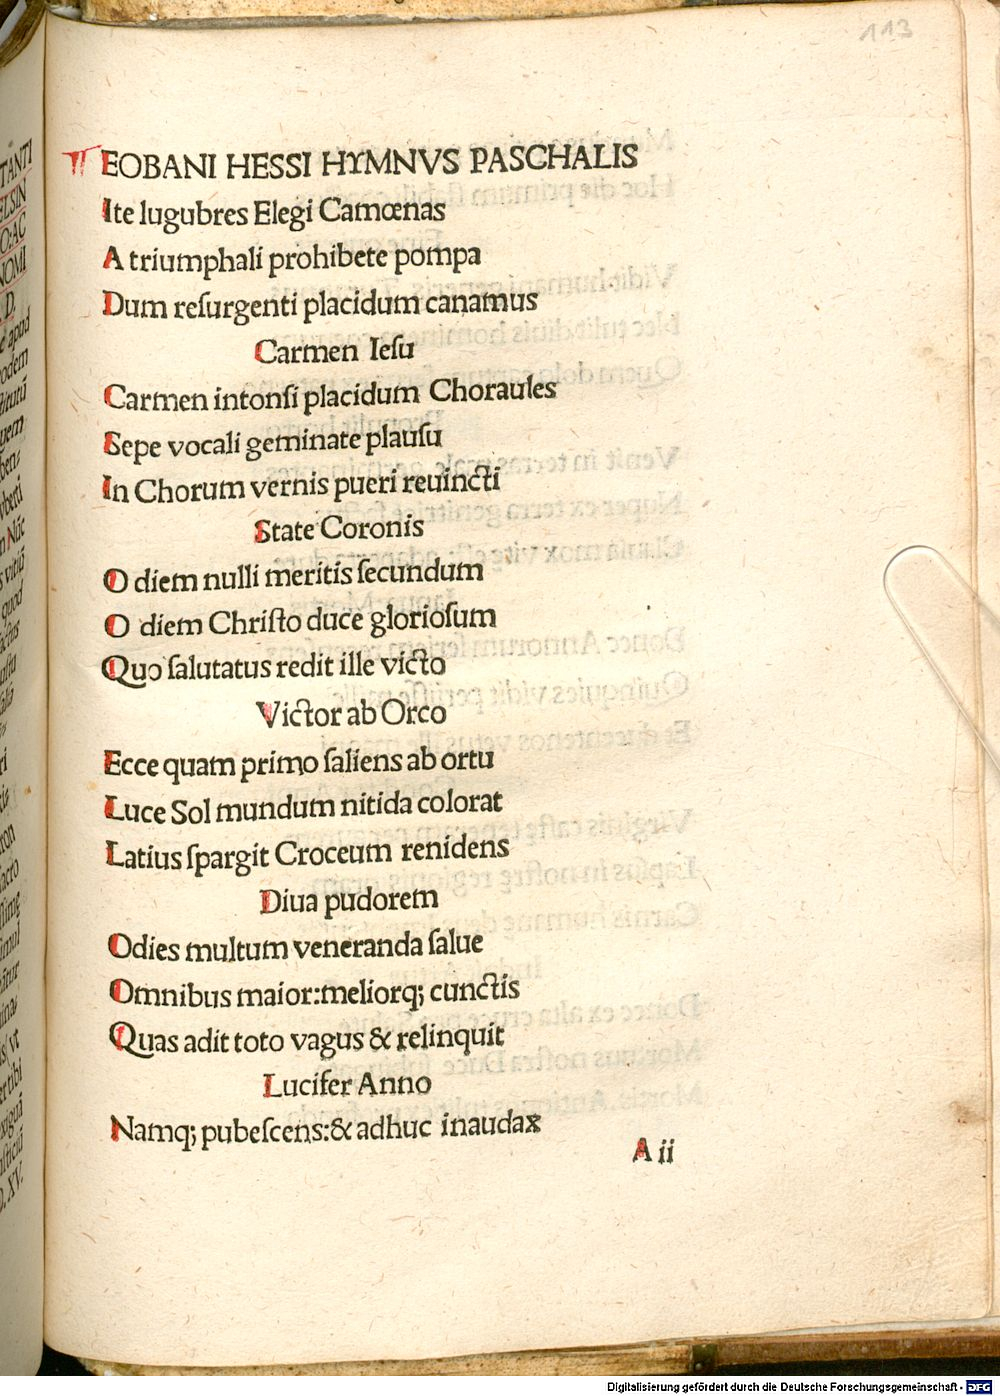 113
EOBANI HESSI HYMNVS PASCHALIS
Ite lugubres Elegi Camœnas
A triumphali prohibete pompa
Dum reſurgenti placidum canamus
Carmen Ieſu
Carmen intonſi placidum Choraules
Sepe vocali geminate plauſu
In Chorum vernis pueri reuincti
State Coronis
O diem nulli meritis ſecundum
O diem Chriſto duce glorioſum
Quo ſalutatus redit ille victo
Victor ab Orco
Ecce quam primo ſaliens ab ortu
Luce Sol mundum nitida colorat
Latius ſpargit Croceum renidens
Diua pudorem
Odies multum veneranda ſalue
Omnibus maior:meliorq; cunctis
Quas adit toto vagus & relinquit
Lucifer Anno
Namq; pubeſcens:& adhuc inaudax
A ii
TANTI
ELSIN
O:AC
NOMI
D.
apud
quod
D. XV.
Digitalisierung gefördert durch die Deutsche Forschungsgemeinschaft - DFG